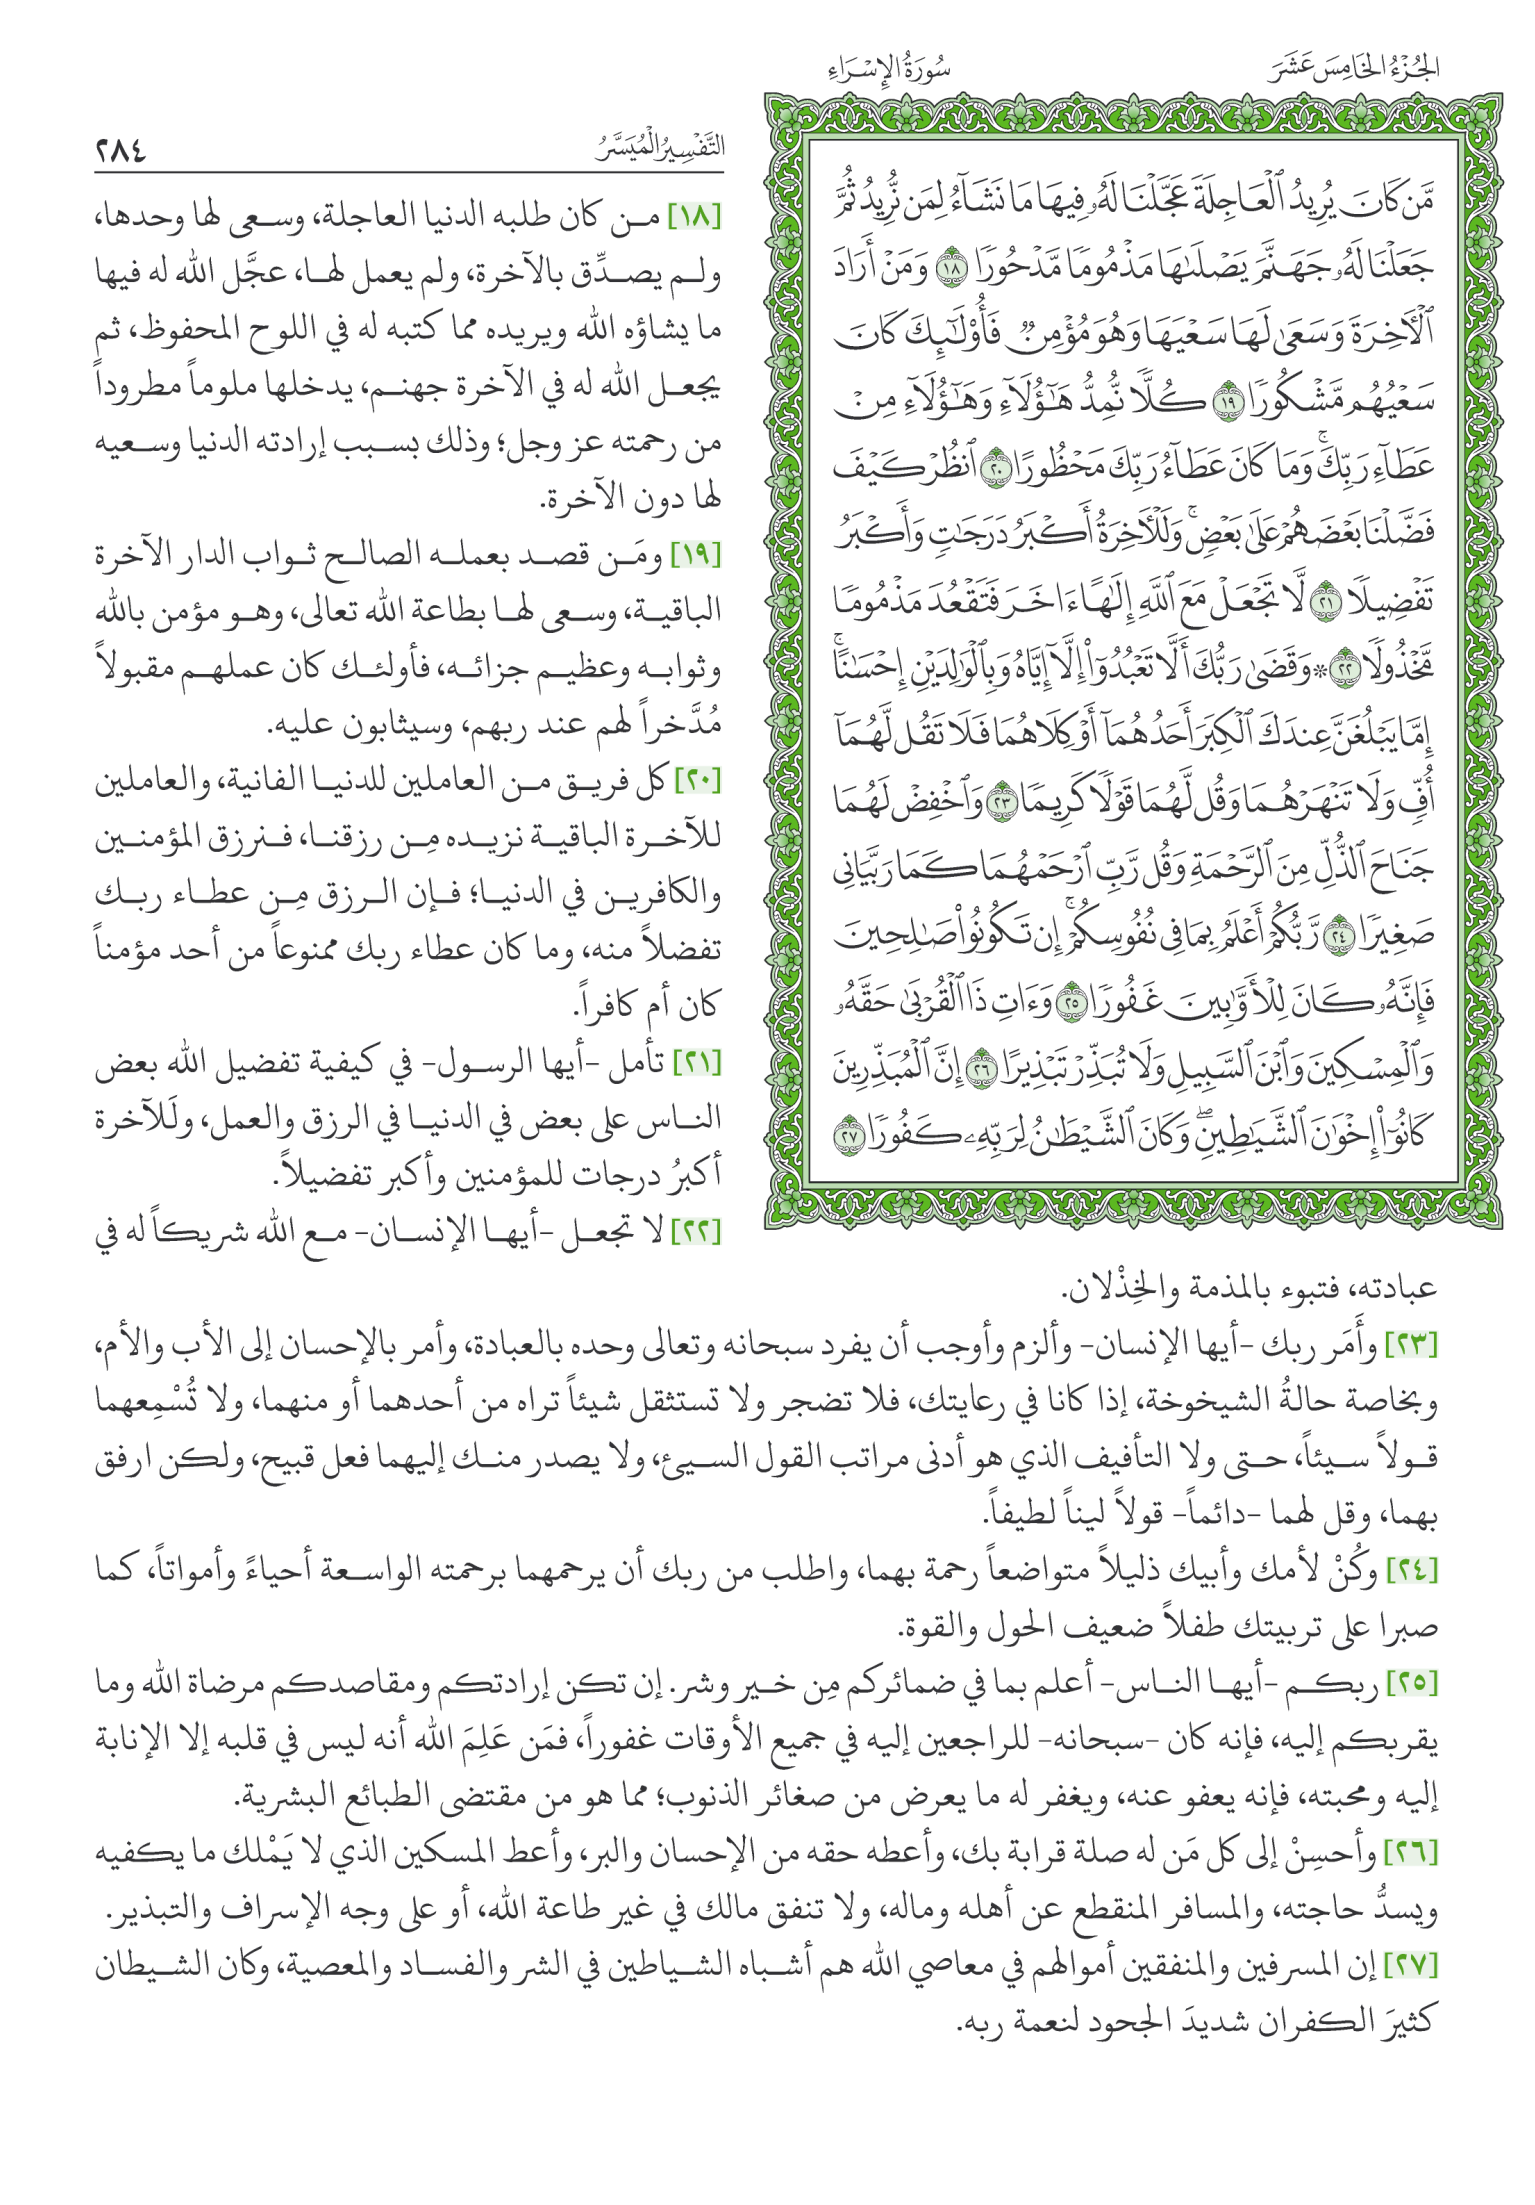 الجُزْءُ الخَامِسَ عَشَرَ
سُورَةُ الإِسْرَاءِ
مَّن كَانَ يُرِيدُ ٱلْعَاجِلَةَ عَجَّلْنَا لَهُۥ فِيهَا مَا نَشَآءُ لِمَن نُّرِيدُ ثُمَّ
جَعَلْنَا لَهُۥ جَهَنَّمَ يَصْلَىٰهَا مَذْمُومًا مَّدْحُورًا ١٨ وَمَنْ أَرَادَ
ٱلْأٓخِرَةَ وَسَعَىٰ لَهَا سَعْيَهَا وَهُوَ مُؤْمِنٌ فَأُوْلَٰٓئِكَ كَانَ
سَعْيُهُم مَّشْكُورًا ١٩ كُلًّا نُّمِدُّ هَٰٓؤُلَآءِ وَهَٰٓؤُلَآءِ مِنْ
عَطَآءِ رَبِّكَۚ وَمَا كَانَ عَطَآءُ رَبِّكَ مَحْظُورًا ٢٠ ٱنظُرْ كَيْفَ
فَضَّلْنَا بَعْضَهُمْ عَلَىٰ بَعْضٍۚ وَلَلْأٓخِرَةُ أَكْبَرُ دَرَجَٰتٍ وَأَكْبَرُ
تَفْضِيلًا ٢١ لَّا تَجْعَلْ مَعَ ٱللَّهِ إِلَٰهًا ءَاخَرَ فَتَقْعُدَ مَذْمُومًا
مَّخْذُولًا ٢٢ ۞ وَقَضَىٰ رَبُّكَ أَلَّا تَعْبُدُوٓاْ إِلَّآ إِيَّاهُ وَبِٱلْوَٰلِدَيْنِ إِحْسَٰنًاۚ
إِمَّا يَبْلُغَنَّ عِندَكَ ٱلْكِبَرَ أَحَدُهُمَآ أَوْ كِلَاهُمَا فَلَا تَقُل لَّهُمَآ
أُفٍّ وَلَا تَنْهَرْهُمَا وَقُل لَّهُمَا قَوْلًا كَرِيمًا ٢٣ وَٱخْفِضْ لَهُمَا
جَنَاحَ ٱلذُّلِّ مِنَ ٱلرَّحْمَةِ وَقُل رَّبِّ ٱرْحَمْهُمَا كَمَا رَبَّيَانِى
صَغِيرًا ٢٤ رَّبُّكُمْ أَعْلَمُ بِمَا فِى نُفُوسِكُمْۚ إِن تَكُونُواْ صَٰلِحِينَ
فَإِنَّهُۥ كَانَ لِلْأَوَّٰبِينَ غَفُورًا ٢٥ وَءَاتِ ذَا ٱلْقُرْبَىٰ حَقَّهُۥ
وَٱلْمِسْكِينَ وَٱبْنَ ٱلسَّبِيلِ وَلَا تُبَذِّرْ تَبْذِيرًا ٢٦ إِنَّ ٱلْمُبَذِّرِينَ
كَانُوٓاْ إِخْوَٰنَ ٱلشَّيَٰطِينِۖ وَكَانَ ٱلشَّيْطَٰنُ لِرَبِّهِۦ كَفُورًا ٢٧
التَّفْسِيرُ الْمُيَسَّرُ
٢٨٤
[١٨] من كان طلبه الدنيا العاجلة، وسعى لها وحدها،
ولم يصدِّق بالآخرة، ولم يعمل لها، عجَّل الله له فيها
ما يشاؤه الله ويريده مما كتبه له في اللوح المحفوظ، ثم
يجعل الله له في الآخرة جهنم، يدخلها ملوماً مطروداً
من رحمته عز وجل؛ وذلك بسبب إرادته الدنيا وسعيه
لها دون الآخرة.
[١٩] ومَن قصد بعمله الصالح ثواب الدار الآخرة
الباقية، وسعى لها بطاعة الله تعالى، وهو مؤمن بالله
وثوابه وعظيم جزائه، فأولئك كان عملهم مقبولاً
مُدَّخراً لهم عند ربهم، وسيثابون عليه.
[٢٠] كل فريق من العاملين للدنيا الفانية، والعاملين
للآخرة الباقية نزيده مِن رزقنا، فنرزق المؤمنين
والكافرين في الدنيا؛ فإن الرزق مِن عطاء ربك
تفضلاً منه، وما كان عطاء ربك ممنوعاً من أحد مؤمناً
كان أم كافراً.
[٢١] تأمل -أيها الرسول- في كيفية تفضيل الله بعض
الناس على بعض في الدنيا في الرزق والعمل، ولَلآخرة
أكبرُ درجات للمؤمنين وأكبر تفضيلاً.
[٢٢] لا تجعل -أيها الإنسان- مع الله شريكاً له في
عبادته، فتبوء بالمذمة والخِذْلان.
[٢٣] وأَمَر ربك -أيها الإنسان- وألزم وأوجب أن يفرد سبحانه وتعالى وحده بالعبادة، وأمر بالإحسان إلى الأب والأم،
وبخاصة حالةُ الشيخوخة، إذا كانا في رعايتك، فلا تضجر ولا تستثقل شيئاً تراه من أحدهما أو منهما، ولا تُسْمِعهما
قولاً سيئاً، حتى ولا التأفيف الذي هو أدنى مراتب القول السيئ، ولا يصدر منك إليهما فعل قبيح، ولكن ارفق
بهما، وقل لهما -دائماً- قولاً ليناً لطيفاً.
[٢٤] وكُنْ لأمك وأبيك ذليلاً متواضعاً رحمة بهما، واطلب من ربك أن يرحمهما برحمته الواسعة أحياءً وأمواتاً، كما
صبرا على تربيتك طفلاً ضعيف الحول والقوة.
[٢٥] ربكم -أيها الناس- أعلم بما في ضمائركم مِن خير وشر. إن تكن إرادتكم ومقاصدكم مرضاة الله وما
يقربكم إليه، فإنه كان -سبحانه- للراجعين إليه في جميع الأوقات غفوراً، فمَن عَلِمَ الله أنه ليس في قلبه إلا الإنابة
إليه ومحبته، فإنه يعفو عنه، ويغفر له ما يعرض من صغائر الذنوب؛ مما هو من مقتضى الطبائع البشرية.
[٢٦] وأحسِنْ إلى كل مَن له صلة قرابة بك، وأعطه حقه من الإحسان والبر، وأعط المسكين الذي لا يَمْلك ما يكفيه
ويسدُّ حاجته، والمسافر المنقطع عن أهله وماله، ولا تنفق مالك في غير طاعة الله، أو على وجه الإسراف والتبذير.
[٢٧] إن المسرفين والمنفقين أموالهم في معاصي الله هم أشباه الشياطين في الشر والفساد والمعصية، وكان الشيطان
كثيرَ الكفران شديدَ الجحود لنعمة ربه.